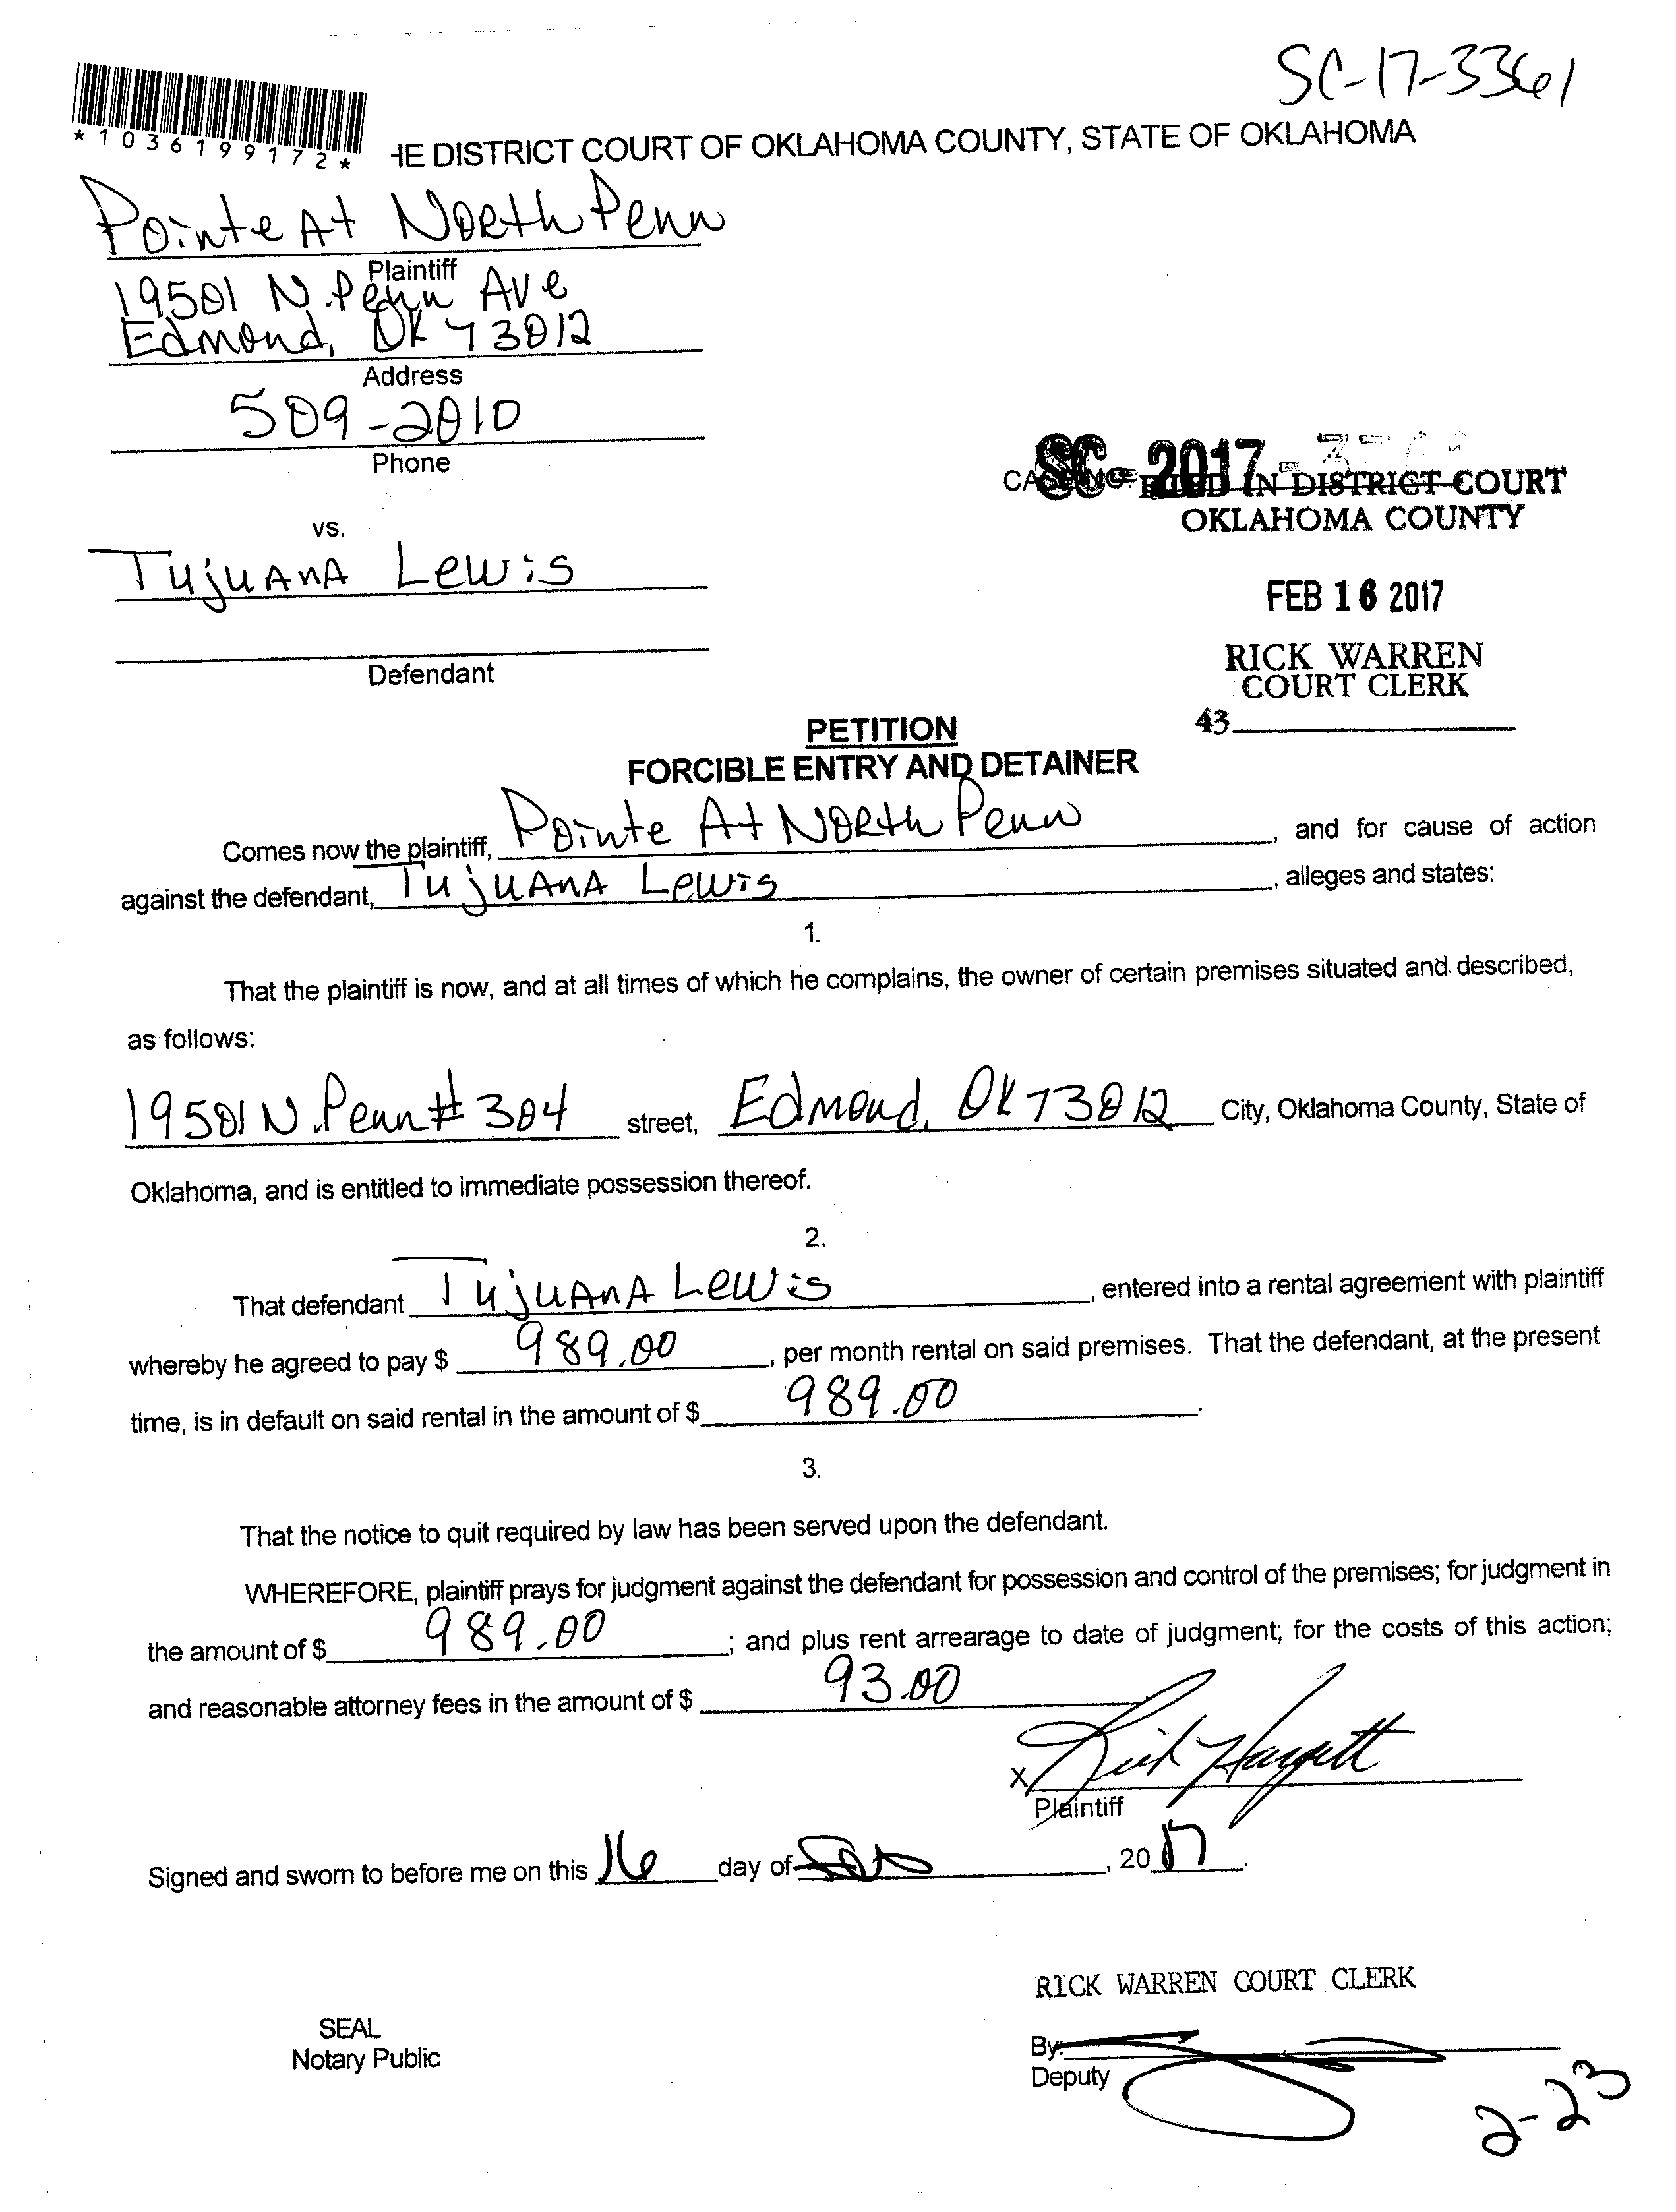 SC-17-3361
*1036199172*
HE DISTRICT COURT OF OKLAHOMA COUNTY, STATE OF OKLAHOMA
Pointe At North Penn
Plaintiff
19501 N. Penn Ave
Edmond, OK 73012
Address
509-2010
Phone
SC - 2017 -
FILED IN DISTRICT COURT
OKLAHOMA COUNTY
vs.
Tujuana Lewis
FEB 16 2017
Defendant
RICK WARREN
COURT CLERK
43
PETITION
FORCIBLE ENTRY AND DETAINER
Comes now the plaintiff, Pointe At North Penn, and for cause of action
against the defendant, Tujuana Lewis, alleges and states:
1.
That the plaintiff is now, and at all times of which he complains, the owner of certain premises situated and described,
as follows:
19501 N. Penn # 304 street, Edmond, OK 73012 City, Oklahoma County, State of
Oklahoma, and is entitled to immediate possession thereof.
2.
That defendant Tujuana Lewis, entered into a rental agreement with plaintiff
whereby he agreed to pay $ 989.00, per month rental on said premises. That the defendant, at the present
time, is in default on said rental in the amount of $ 989.00.
3.
That the notice to quit required by law has been served upon the defendant.
WHEREFORE, plaintiff prays for judgment against the defendant for possession and control of the premises; for judgment in
the amount of $ 989.00; and plus rent arrearage to date of judgment; for the costs of this action;
and reasonable attorney fees in the amount of $ 93.00
X
Plaintiff
Signed and sworn to before me on this 16 day of , 2017.
RICK WARREN COURT CLERK
SEAL
Notary Public
By:
Deputy
2-23